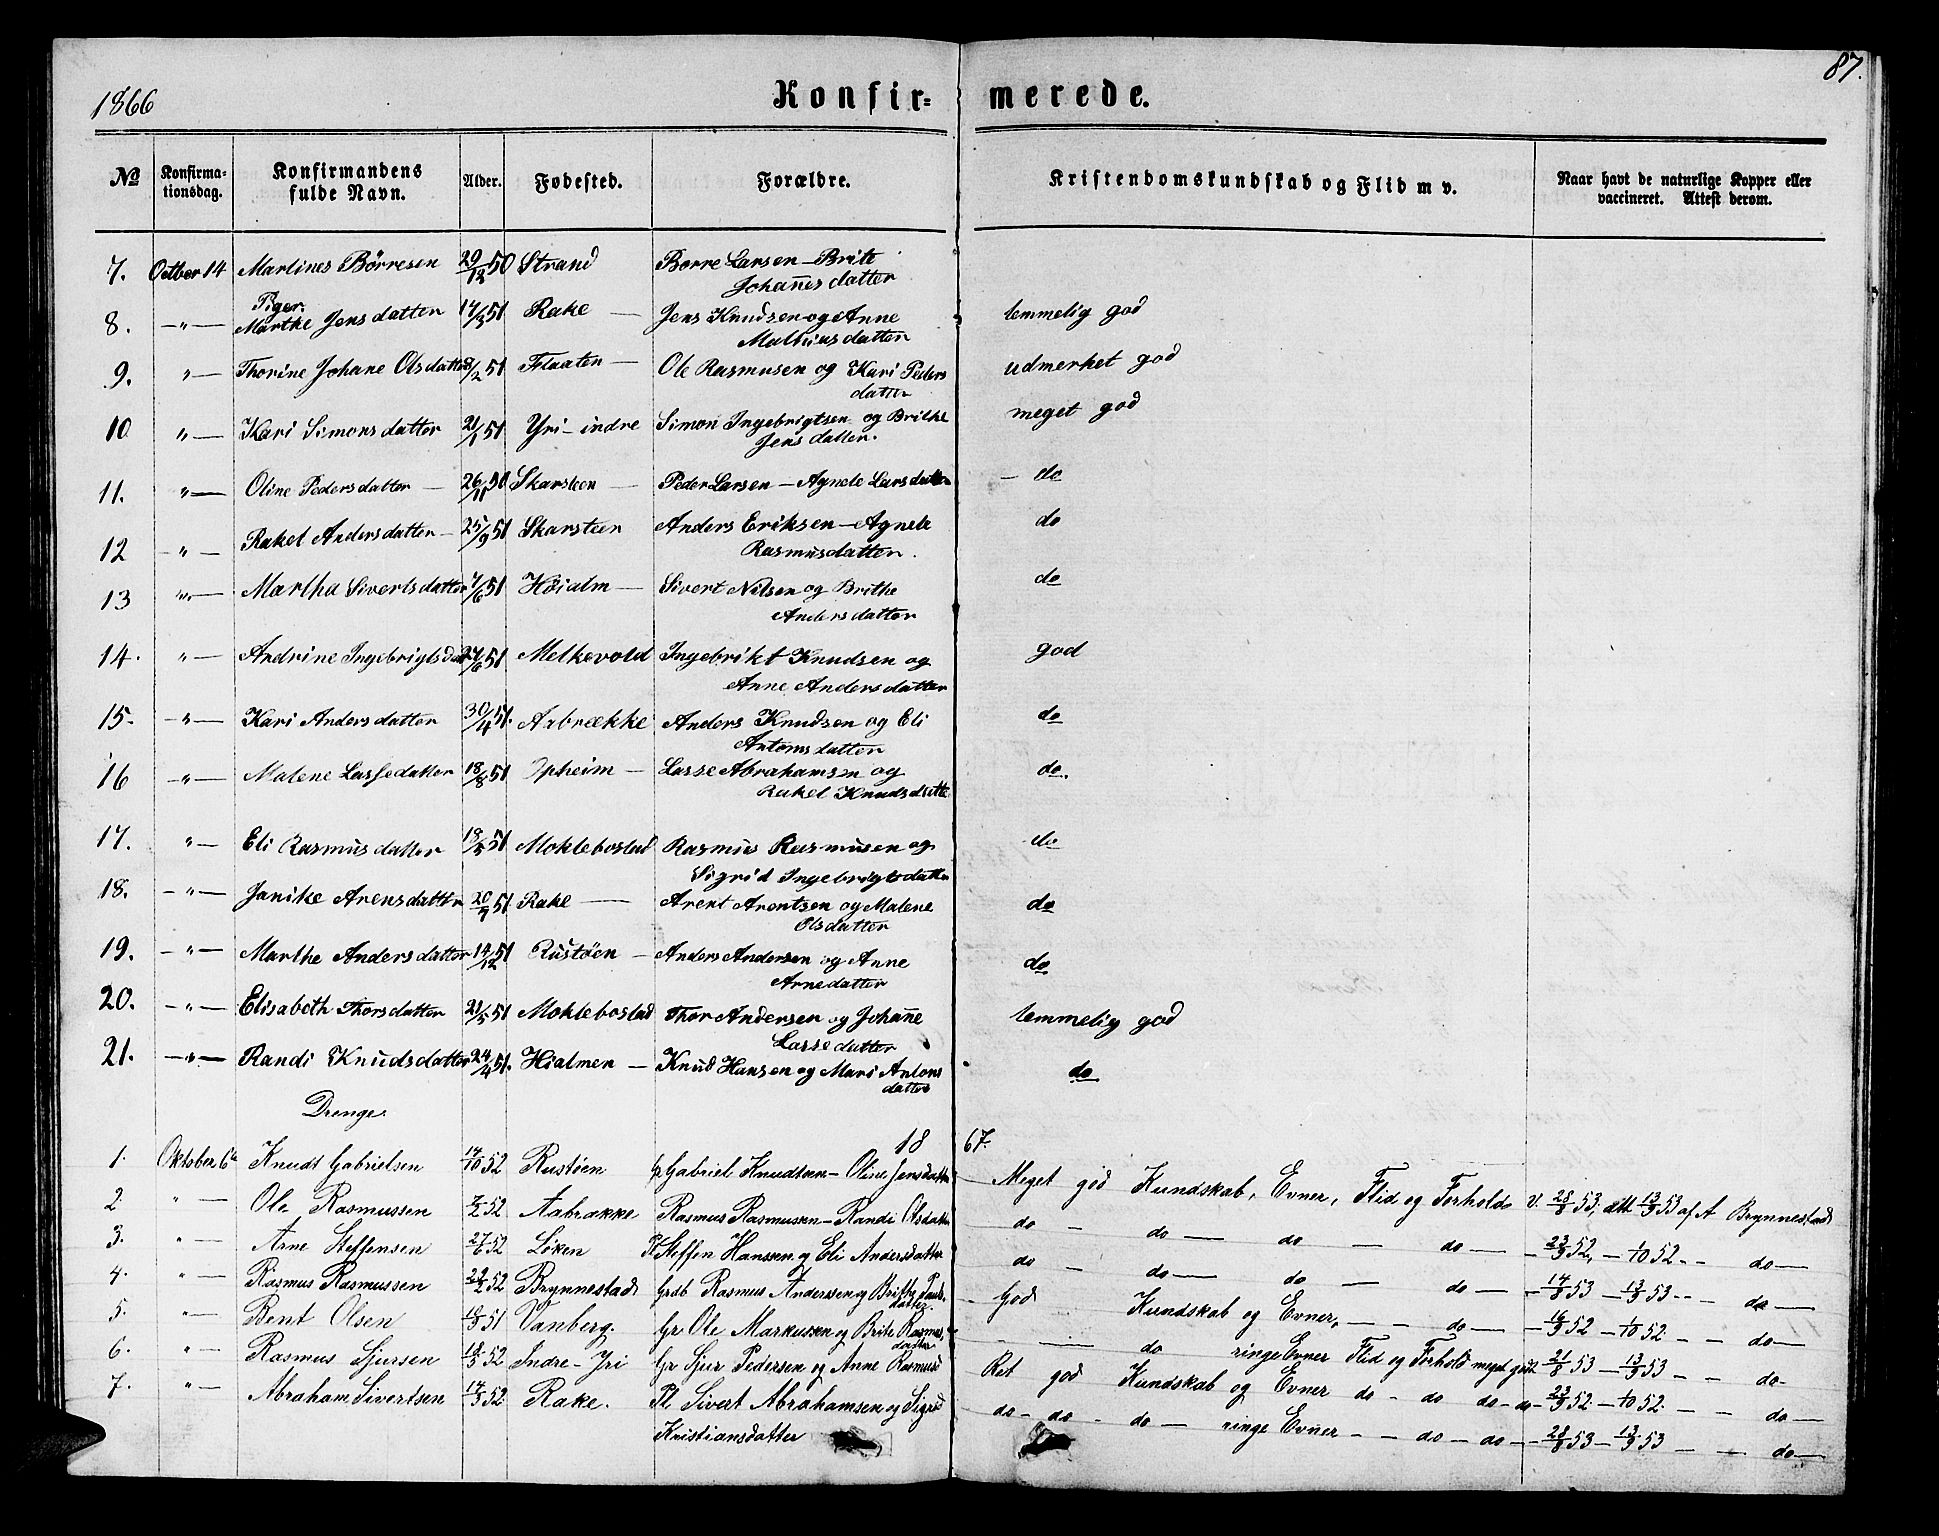 1866
Konfir=
merede.
87.
No
Konfirma-
tionsdag.
Konfirmandens
fulde Navn.
Alder.
Fødested.
Forældre.
Kristendomskundskab og Flid m v.
Naar havt de naturlige Kopper eller
vaccineret. Attest derom.
7. Octber 14 Martines Börresen 29/12 50 Strand Borre Larsen - Brite
Johannes datter
Piger.
8. -"- Marthe Jensdatter 17/3 51 Rake - Jens Knudsen og Anne temmelig god
Mathiusdatter
9. "- Thorine Johane Olsdatter /2 51 Flaaten - Ole Rasmusen og Kari Peders udmerket god
datter
10 "- Kari Simonsdatter 2/1 51 Yri-indre Simon Ingebrigtsen og Brithe meget god
Jensdatter.
11. "- Oline Pedersdatter - 26/11 50 Skarsteen - Peder Larsen - Agnete Larsdatter - do
12 -"- Rakel Andersdatter - 25/9 51 Skarsteen Anders Eriksen - Agnete do
Rasmusdatter.
13 "- Martha Sivertsdatter 7/6 51 Höialm - Sivert Nilsen og Brithe do
Andersdatter
14. "- Andrine Ingebrigtsdat 27/6 51 Melkevold Ingebrikt Knudsen og god
Anne Andersdatter
15. -"- Kari Andersdatter 30/4 51. Aabrække Anders Knudsen og Eli do
Antonsdatter
16 -"- Malene Lassedatter 18/8 51 Opheim - Lasse Abrahamsen og do.
Rakel Knudsdatte
17. "- Eli Rasmusdatter 18/5 51 Moklebostad Rasmus Rasmusen og do
Sigrid Ingebrigtsdatter
18. -"- Janike Arensdatter 20/7 51 Rake - Arent Arentsen og Malene do
Olsdatter
19. -"- Marthe Andersdatter 14/12 51 Rustöen - Anders Andersen og Anne do
Arnedatter
20. -"- Elisabeth Thorsdatter 23/5 51 Moklebostad Thor Andersen og Johanne temmelig god
Lassedatter
21. -"- Randi Knudsdatter 24/4 51. Hialmen - Knud Hansen og Mari Antons do
datter
Drenge.
1867.
1. Oktober 6te Knudt Gabrielsen 14/10 52 Rustöen Gabriel Knudtsen - Oline Jensdatter - Meget god Kundskab, Evner, Flid og Forhold V. 28/8 53, att 13/9 53 af A Brynnestad
2. " - Ole Rasmussen 7/2 52 Aabrække Rasmus Rasmussen - Randi Olsdatter do - do - do - do - - 23/9 52, - 1/10 52 - - do -
3. " - Arne Steffensen 27/6 52 Löken Pl Steffen Hanssen og Eli Andersdatter do - do - do - do - - 14/8 53 - 13/9 53 - - do -
4. " - Rasmus Rasmussen 22/2 52 Brynnestad Grdb Rasmus Anderssen og Brithe Pauls- - God Kundskab og Evner, - - do - - 16/9 52 - 1/10 52. - - do -
datter.
5. " - Bent Olsen 18/9 51 Vanberg. Gr Ole Markussen og Brite Rasmus, - - do ringe Evner Flid og Forhold meget godt 21/8 53 - 13/9 53 - - do -
datter
6. " - Rasmus Sjursen 18/5 52 Indre-Yri Gr Sjur Pedersen og Anne Rasmusd Ret god Kundskab og Evner do - do do - do - 23/9 52. - 1/10 52. - - do -
7. " - Abraham Sivertsen 14/5 52 Rake. Pl Sivert Abrahamsen og Sigrid do - do - do - ringe Evner - - do - do - - 28/8 53 - 13/9 53 - - do -
Kristiansdatter